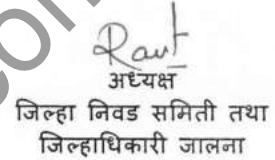 Raut
अध्यक्ष
जिल्हा निवड समिती तथा
जिल्हाधिकारी जालना